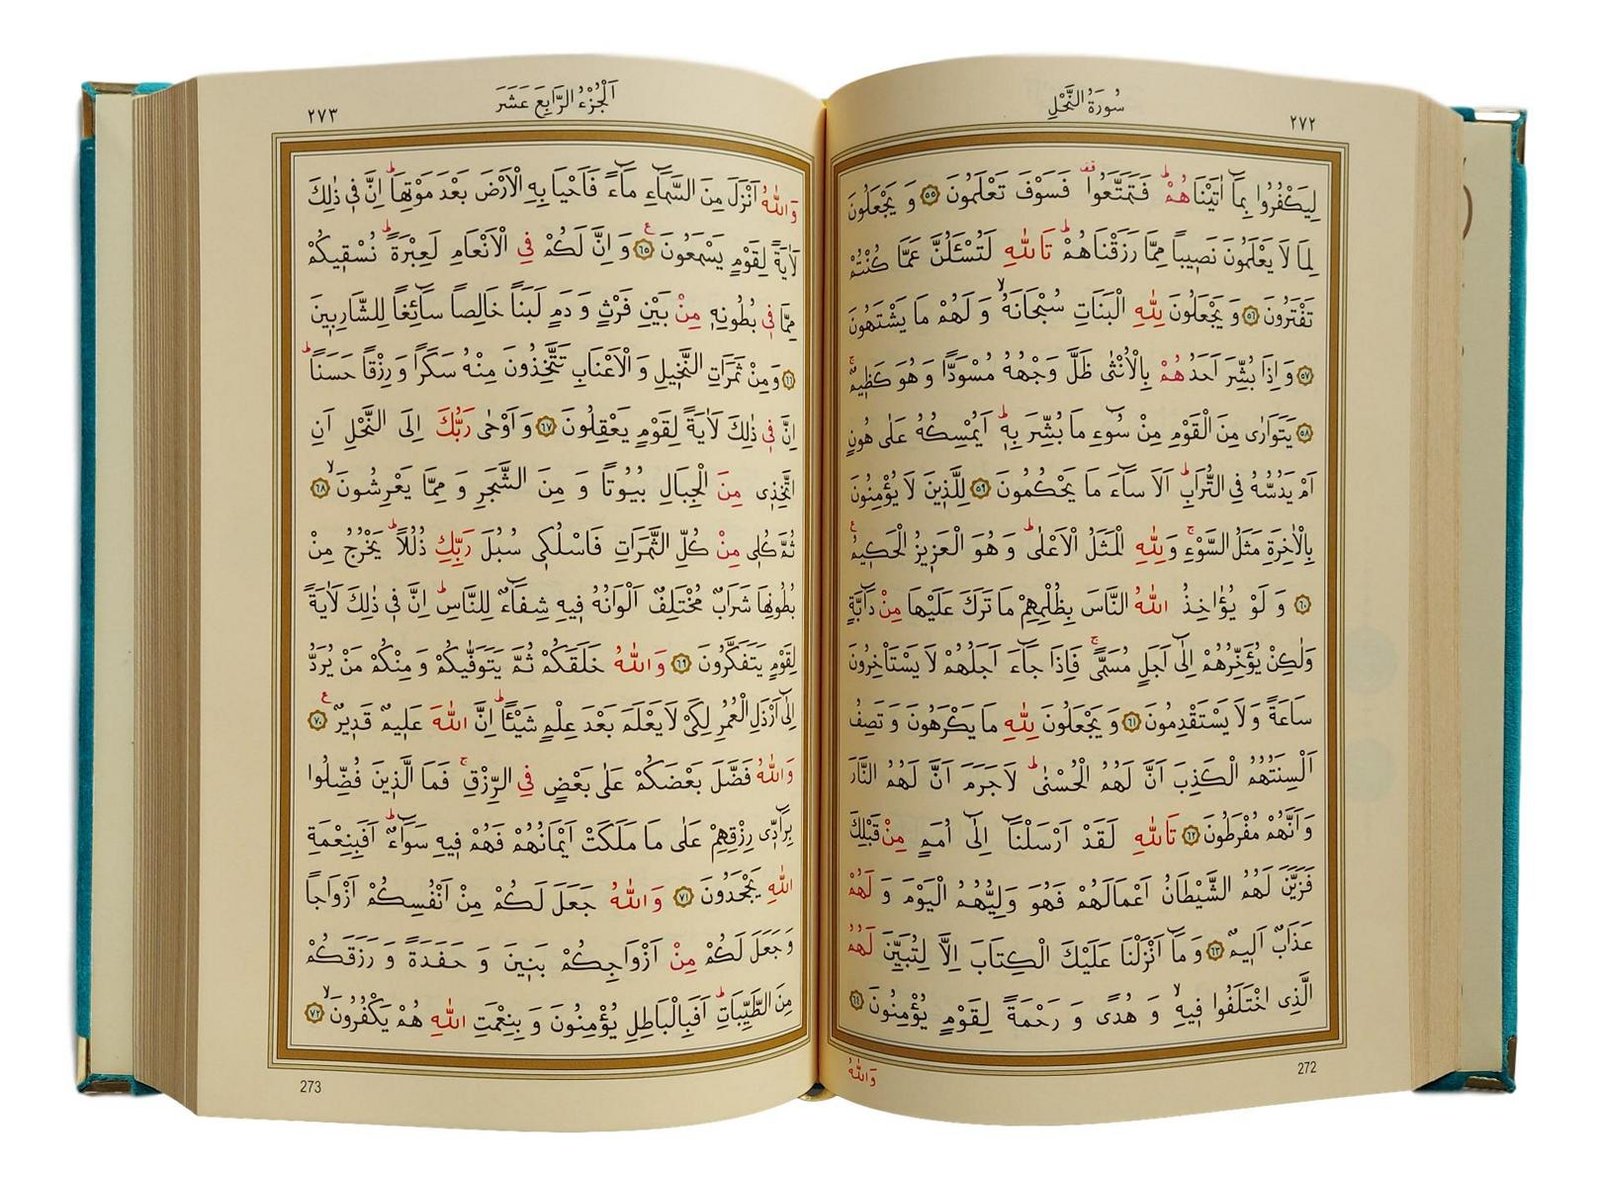 سُورَةُ النَّحْلِ
٢٧٢
لِيَكْفُرُوا بِمَٓا اٰتَيْنَاهُمْۜ فَتَمَتَّعُوا۠ فَسَوْفَ تَعْلَمُونَ ﴿٥٥﴾ وَ يَجْعَلُونَ
لِمَا لَا يَعْلَمُونَ نَص۪يبًا مِمَّا رَزَقْنَاهُمْۜ تَاللّٰهِ لَتُسْـَٔلُنَّ عَمَّا كُنْتُمْ
تَفْتَرُونَ ﴿٥٦﴾ وَ يَجْعَلُونَ لِلّٰهِ الْبَنَاتِ سُبْحَانَهُۙ وَ لَهُمْ مَا يَشْتَهُونَ
﴿٥٧﴾ وَ اِذَا بُشِّرَ اَحَدُهُمْ بِالْاُنْثٰى ظَلَّ وَجْهُهُ مُسْوَدًّا وَ هُوَ كَظ۪يمٌۚ
﴿٥٨﴾ يَتَوَارٰى مِنَ الْقَوْمِ مِنْ سُٓوءِ مَا بُشِّرَ بِه۪ۜ اَيُمْسِكُهُ عَلٰى هُونٍ
اَمْ يَدُسُّهُ فِي التُّرَابِۜ اَلَا سَٓاءَ مَا يَحْكُمُونَ ﴿٥٩﴾ لِلَّذ۪ينَ لَا يُؤْمِنُونَ
بِالْاٰخِرَةِ مَثَلُ السَّوْءِۚ وَلِلّٰهِ الْمَثَلُ الْاَعْلٰىۜ وَ هُوَ الْعَز۪يزُ الْحَك۪يمُ۟
﴿٦٠﴾ وَ لَوْ يُؤَاخِذُ اللّٰهُ النَّاسَ بِظُلْمِهِمْ مَا تَرَكَ عَلَيْهَا مِنْ دَٓابَّةٍ
وَلٰكِنْ يُؤَخِّرُهُمْ اِلٰٓى اَجَلٍ مُسَمًّىۚ فَاِذَا جَٓاءَ اَجَلُهُمْ لَا يَسْتَأْخِرُونَ
سَاعَةً وَ لَا يَسْتَقْدِمُونَ ﴿٦١﴾ وَ يَجْعَلُونَ لِلّٰهِ مَا يَكْرَهُونَ وَ تَصِفُ
اَلْسِنَتُهُمُ الْكَذِبَ اَنَّ لَهُمُ الْحُسْنٰىۜ لَا جَرَمَ اَنَّ لَهُمُ النَّارَ
وَ اَنَّهُمْ مُفْرَطُونَ ﴿٦٢﴾ تَاللّٰهِ لَقَدْ اَرْسَلْنَٓا اِلٰٓى اُمَمٍ مِنْ قَبْلِكَ
فَزَيَّنَ لَهُمُ الشَّيْطَانُ اَعْمَالَهُمْ فَهُوَ وَلِيُّهُمُ الْيَوْمَ وَ لَهُمْ
عَذَابٌ اَل۪يمٌ ﴿٦٣﴾ وَ مَٓا اَنْزَلْنَا عَلَيْكَ الْكِتَابَ اِلَّا لِتُبَيِّنَ لَهُمُ
الَّذِي اخْتَلَفُوا ف۪يهِۙ وَ هُدًى وَ رَحْمَةً لِقَوْمٍ يُؤْمِنُونَ ﴿٦٤﴾
272
وَاللّٰهُ
اَلْجُزْءُ الرَّابِعَ عَشَرَ
٢٧٣
وَاللّٰهُ اَنْزَلَ مِنَ السَّمَٓاءِ مَٓاءً فَاَحْيَا بِهِ الْاَرْضَ بَعْدَ مَوْتِهَاۜ اِنَّ ف۪ي ذٰلِكَ
لَاٰيَةً لِقَوْمٍ يَسْمَعُونَ۟ ﴿٦٥﴾ وَ اِنَّ لَكُمْ فِي الْاَنْعَامِ لَعِبْرَةًۜ نُسْق۪يكُمْ
مِمَّا ف۪ي بُطُونِه۪ مِنْ بَيْنِ فَرْثٍ وَ دَمٍ لَبَنًا خَالِصًا سَٓائِغًا لِلشَّارِب۪ينَ
﴿٦٦﴾ وَ مِنْ ثَمَرَاتِ النَّخ۪يلِ وَ الْاَعْنَابِ تَتَّخِذُونَ مِنْهُ سَكَرًا وَ رِزْقًا حَسَنًاۜ
اِنَّ ف۪ي ذٰلِكَ لَاٰيَةً لِقَوْمٍ يَعْقِلُونَ ﴿٦٧﴾ وَ اَوْحٰى رَبُّكَ اِلَى النَّحْلِ اَنِ
اتَّخِذ۪ي مِنَ الْجِبَالِ بُيُوتًا وَ مِنَ الشَّجَرِ وَ مِمَّا يَعْرِشُونَۙ ﴿٦٨﴾
ثُمَّ كُل۪ي مِنْ كُلِّ الثَّمَرَاتِ فَاسْلُك۪ي سُبُلَ رَبِّكِ ذُلُلًاۜ يَخْرُجُ مِنْ
بُطُونِهَا شَرَابٌ مُخْتَلِفٌ اَلْوَانُهُ ف۪يهِ شِفَٓاءٌ لِلنَّاسِۜ اِنَّ ف۪ي ذٰلِكَ لَاٰيَةً
لِقَوْمٍ يَتَفَكَّرُونَ ﴿٦٩﴾ وَاللّٰهُ خَلَقَكُمْ ثُمَّ يَتَوَفّٰيكُمْ وَ مِنْكُمْ مَنْ يُرَدُّ
اِلٰٓى اَرْذَلِ الْعُمُرِ لِكَيْ لَا يَعْلَمَ بَعْدَ عِلْمٍ شَيْـًٔاۜ اِنَّ اللّٰهَ عَل۪يمٌ قَد۪يرٌ۟ ﴿٧٠﴾
وَاللّٰهُ فَضَّلَ بَعْضَكُمْ عَلٰى بَعْضٍ فِي الرِّزْقِۚ فَمَا الَّذ۪ينَ فُضِّلُوا
بِرَٓادّ۪ي رِزْقِهِمْ عَلٰى مَا مَلَكَتْ اَيْمَانُهُمْ فَهُمْ ف۪يهِ سَوَٓاءٌۜ اَفَبِنِعْمَةِ
اللّٰهِ يَجْحَدُونَ ﴿٧١﴾ وَاللّٰهُ جَعَلَ لَكُمْ مِنْ اَنْفُسِكُمْ اَزْوَاجًا
وَ جَعَلَ لَكُمْ مِنْ اَزْوَاجِكُمْ بَن۪ينَ وَ حَفَدَةً وَ رَزَقَكُمْ
مِنَ الطَّيِّبَاتِۜ اَفَبِالْبَاطِلِ يُؤْمِنُونَ وَ بِنِعْمَتِ اللّٰهِ هُمْ يَكْفُرُونَۙ ﴿٧٢﴾
273